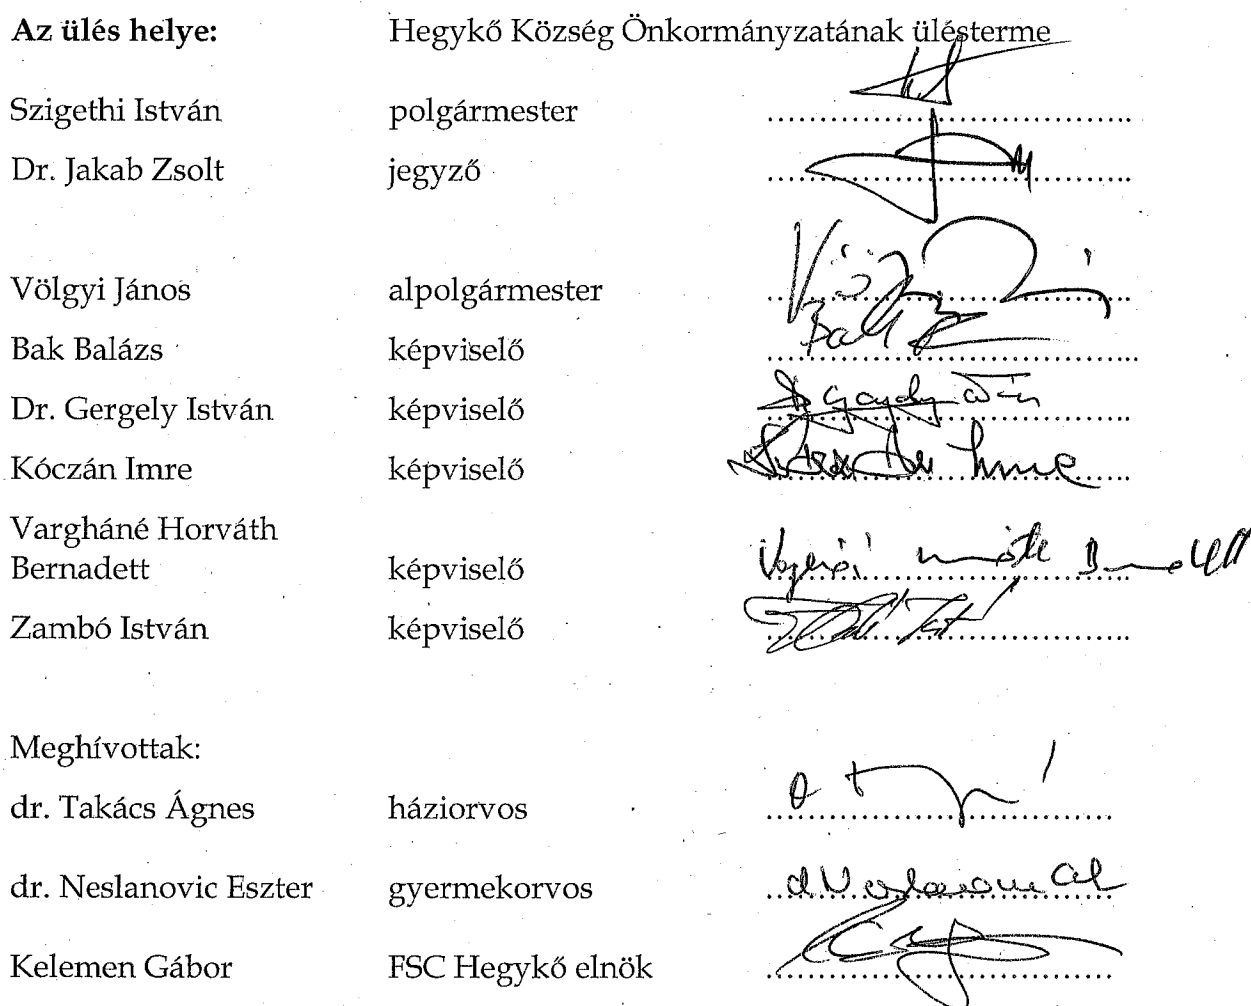 Az ülés helye: Hegykő Község Önkormányzatának ülésterme
Szigethi István polgármester
Dr. Jakab Zsolt jegyző
Völgyi János alpolgármester
Bak Balázs képviselő
Dr. Gergely István képviselő
Kóczán Imre képviselő
Vargháné Horváth
Bernadett képviselő
Zambó István képviselő
Meghívottak:
dr. Takács Ágnes háziorvos
dr. Neslanovic Eszter gyermekorvos
Kelemen Gábor FSC Hegykő elnök